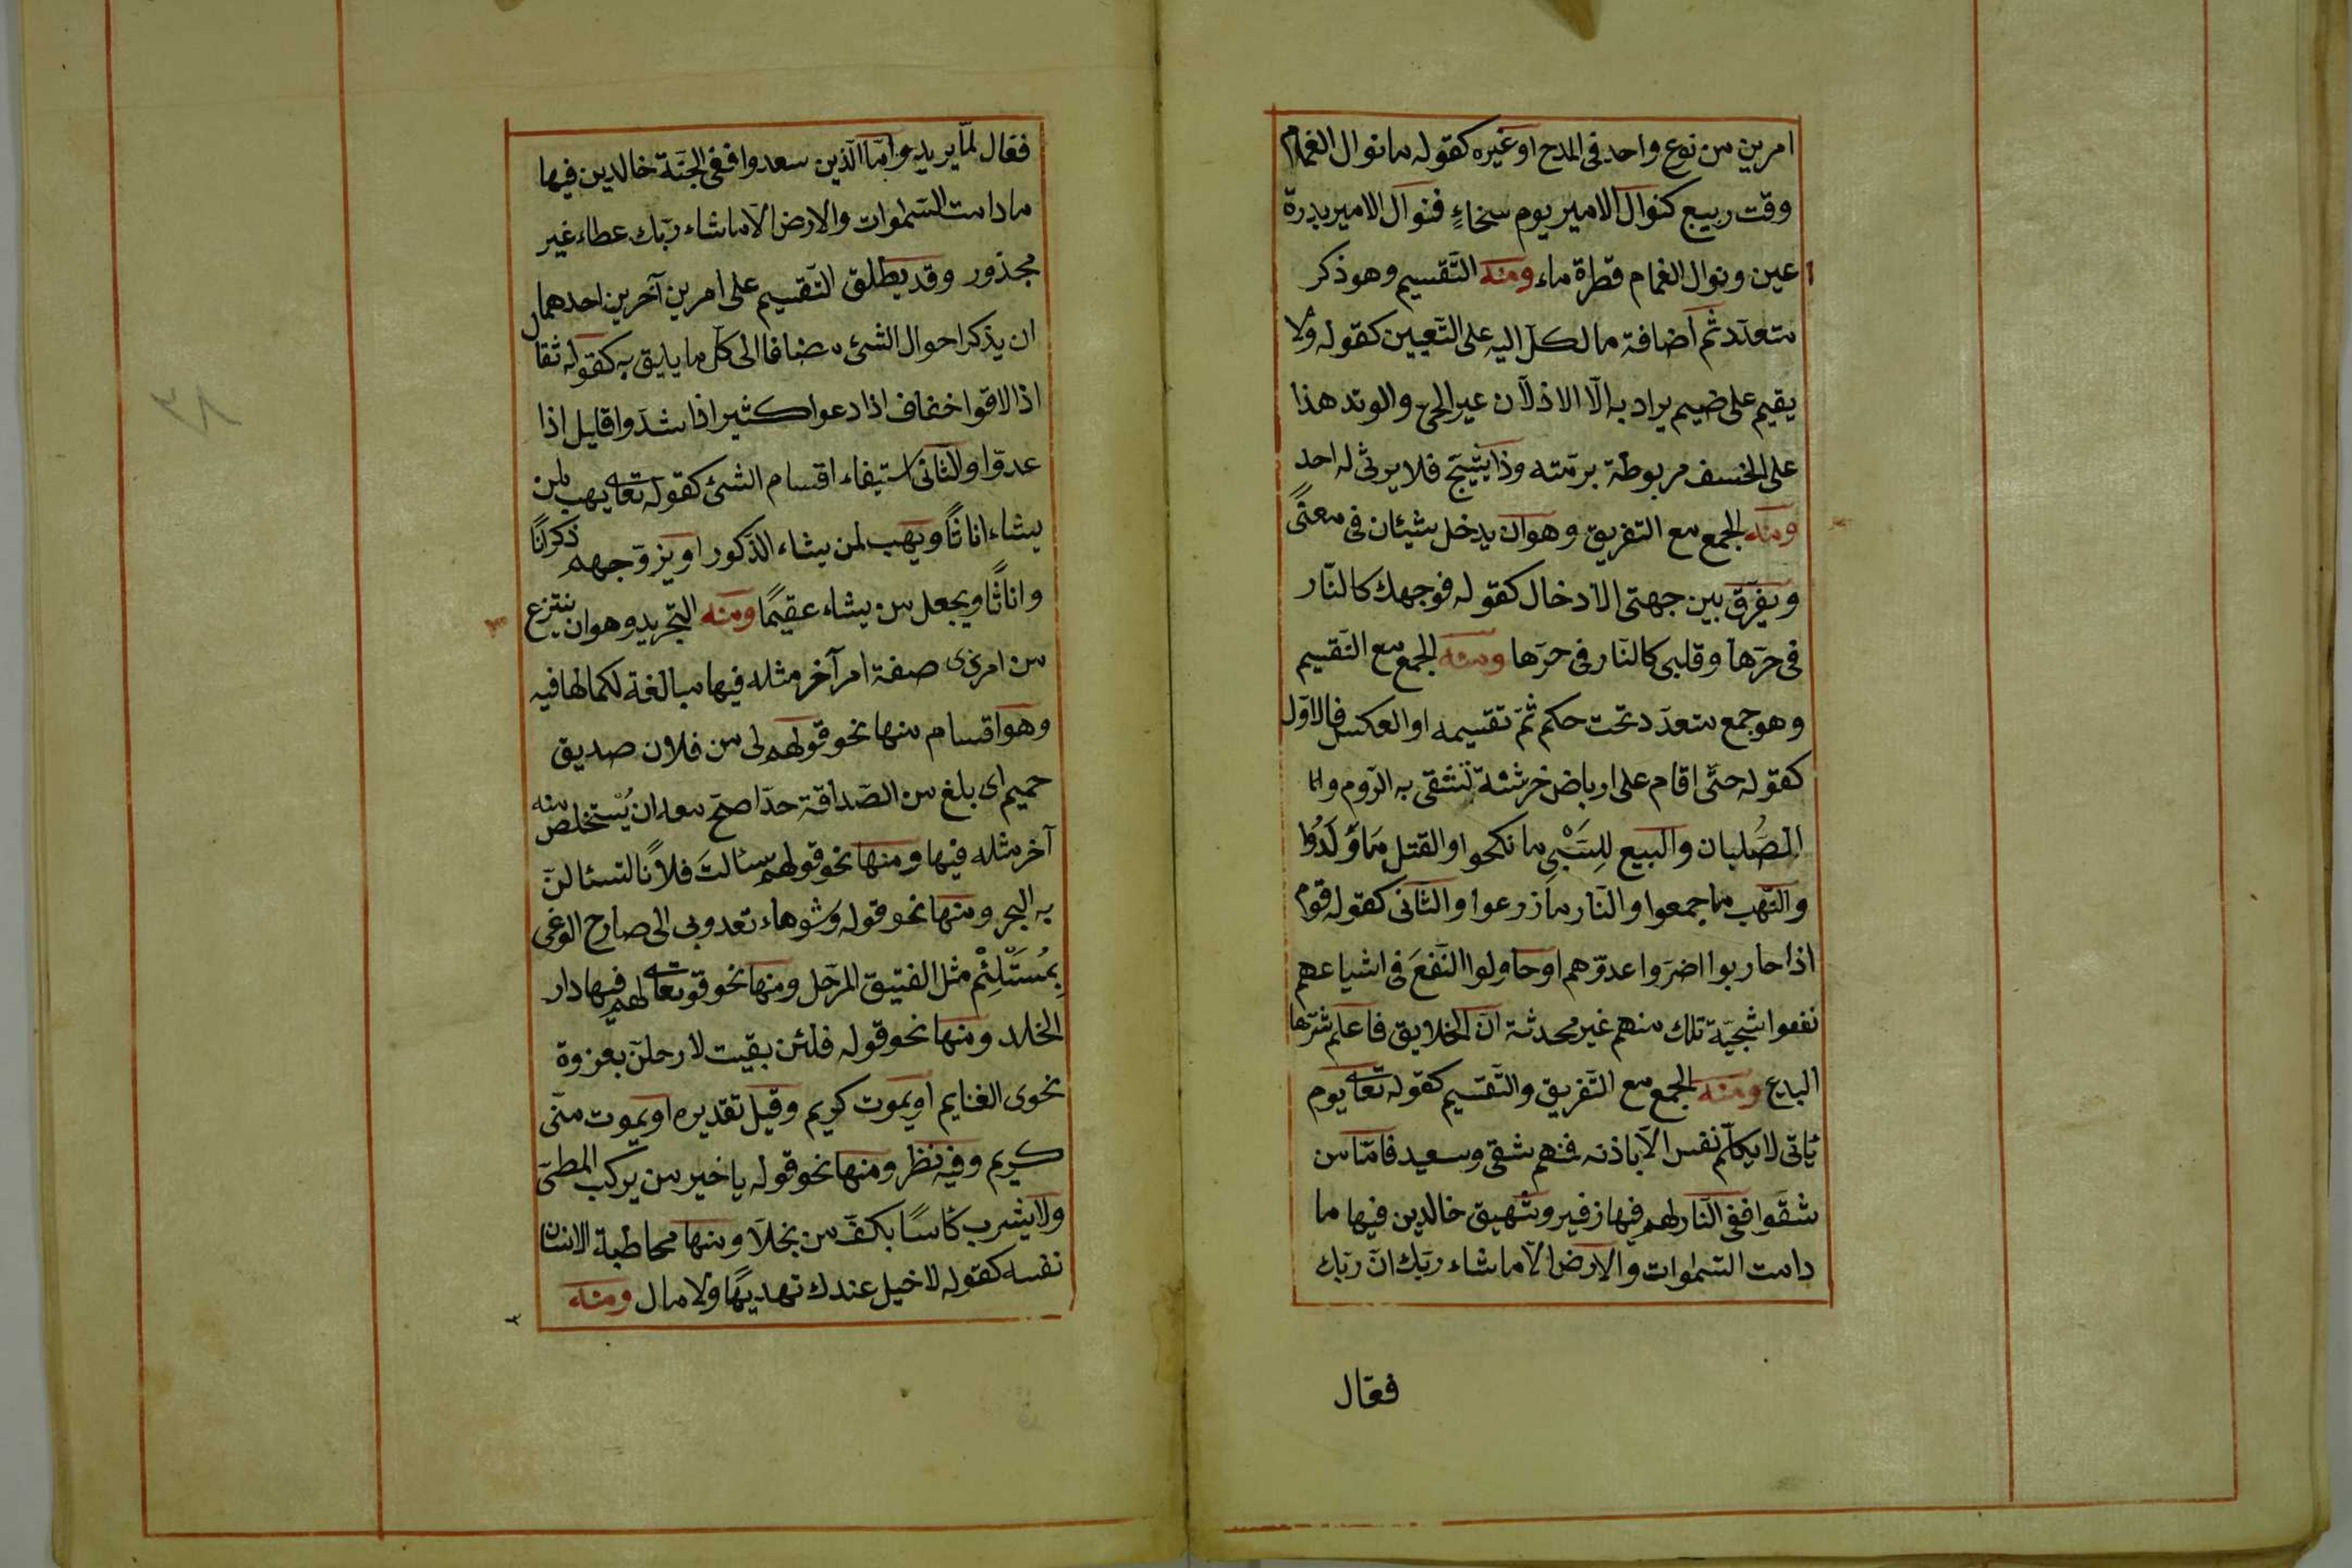 امرين من نوع واحد فى المدح او غيره كقوله ما نوال الغمام
وقت ربيع كنوال الامير يوم سخاءٍ فنوال الامير بدرة
عين ونوال الغمام قطرة ماء ومنه التّقسيم وهو ذكر
متعدّد ثم اضافة ما لكلّ اليه على التّعيين كقوله ولا
يقيم على ضيم يراد به الّا الاذلّان عير الحى والوتد هذا
على الخسف مربوطة برمّته وذا يشج فلا يرثى له احد
ومنه الجمع مع التفريق وهو ان يدخل شيئان فى معنًى
ويفرّق بين جهتى الادخال كقوله فوجهك كالنّار
فى حرّها وقلبى كالنّار فى حرّها ومنه الجمع مع التّقسيم
وهو جمع متعدّد تحت حكم ثمّ تقسيمه او العكس فالاوّل
كقوله حتّى اقام على ارباض خرشنة تشقى به الرّوم وا
الصُّلبان والبيع لِلسَّبْىِ ما نكحوا والقتل مَا وَلَدُوا
والنّهب ما جمعوا والنّار ما زرعوا والثّانى كقوله قوم
اذا حاربوا اضرّوا عدوّهم او حاولوا النّفعَ فى اشياعهم
نفعوا سجيّة تلك منهم غير محدثة انّ الخلايق فاعلم شرّها
البدع ومنه الجمع مع التّفريق والتّقسيم كقوله تعالى يوم
يأتى لا يكلّم نفس الّا باذنه فمنهم شقى وسعيد فامّا من
شقوا ففى النّار لهم فيها زفير وشهيق خالدين فيها ما
دامت السّموات والارض الّا ما شاء ربّك انّ ربّك
فعّال
فعّال لما يريد وامّا الّذين سعدوا ففى الجنّة خالدين فيها
ما دامت السّموات والارض الّا ما شاء ربّك عطاء غير
مجذور وقد يطلق التّقسيم على امرين آخرين احدهما
ان يذكر احوال الشئ مضافا الى كلّ ما يليق به كقوله ثقال
اذا لاقوا خفاف اذا دعوا كثير اذا شدّوا قليل اذا
عدوّا والثّانى استيفاء اقسام الشئ كقوله تعالى يهب لمن
يشاء اناثًا ويهب لمن يشاء الذّكور او يزوّجهم ذكرانًا
واناثًا ويجعل من يشاء عقيمًا ومنه التّجريد وهو ان ينتزع
من امر ذى صفة امر آخر مثله فيها مبالغة لكمالها فيه
وهو اقسام منها نحو قولهم لى من فلان صديق
حميم اى بلغ من الصّداقة حدّا صحّ معه ان يُستخلص منه
آخر مثله فيها ومنها نحو قولهم سئالتَ فلانًا لتسئالنّ
به البحر ومنها نحو قوله وشوهاء تعدو بى الى صارخ الوغى
بِمُسْتَلْئِمْ مثل الفتيق المرّحل ومنها نحو قوله تعالى لهم فيها دار
الخلد ومنها نحو قوله فلئن بقيت لارحلنّ بعزوة
نحوى الغنايم او يموت كريم وقيل تقديره او يموت منّى
كريم وفيه نظر ومنها نحو قوله يا خير من يركب المطىّ
ولا يشرب كأسًا بكفّ من بخلا ومنها مخاطبة الانسان
نفسه كقوله لا خيل عندك تهديهًا ولا مال ومنه